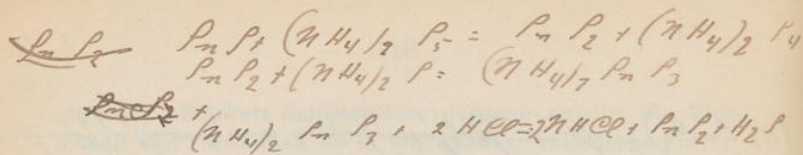 Sn S2 Sn S + (N H4)2 S5 = Sn S2 + (N H4)2 S4
Sn S2 + (N H4)2 S = (N H4)2 Sn S3
Sn S2 +
(N H4)2 Sn S3 + 2 H Cl = 2 N H Cl + Sn S2 + H2 S